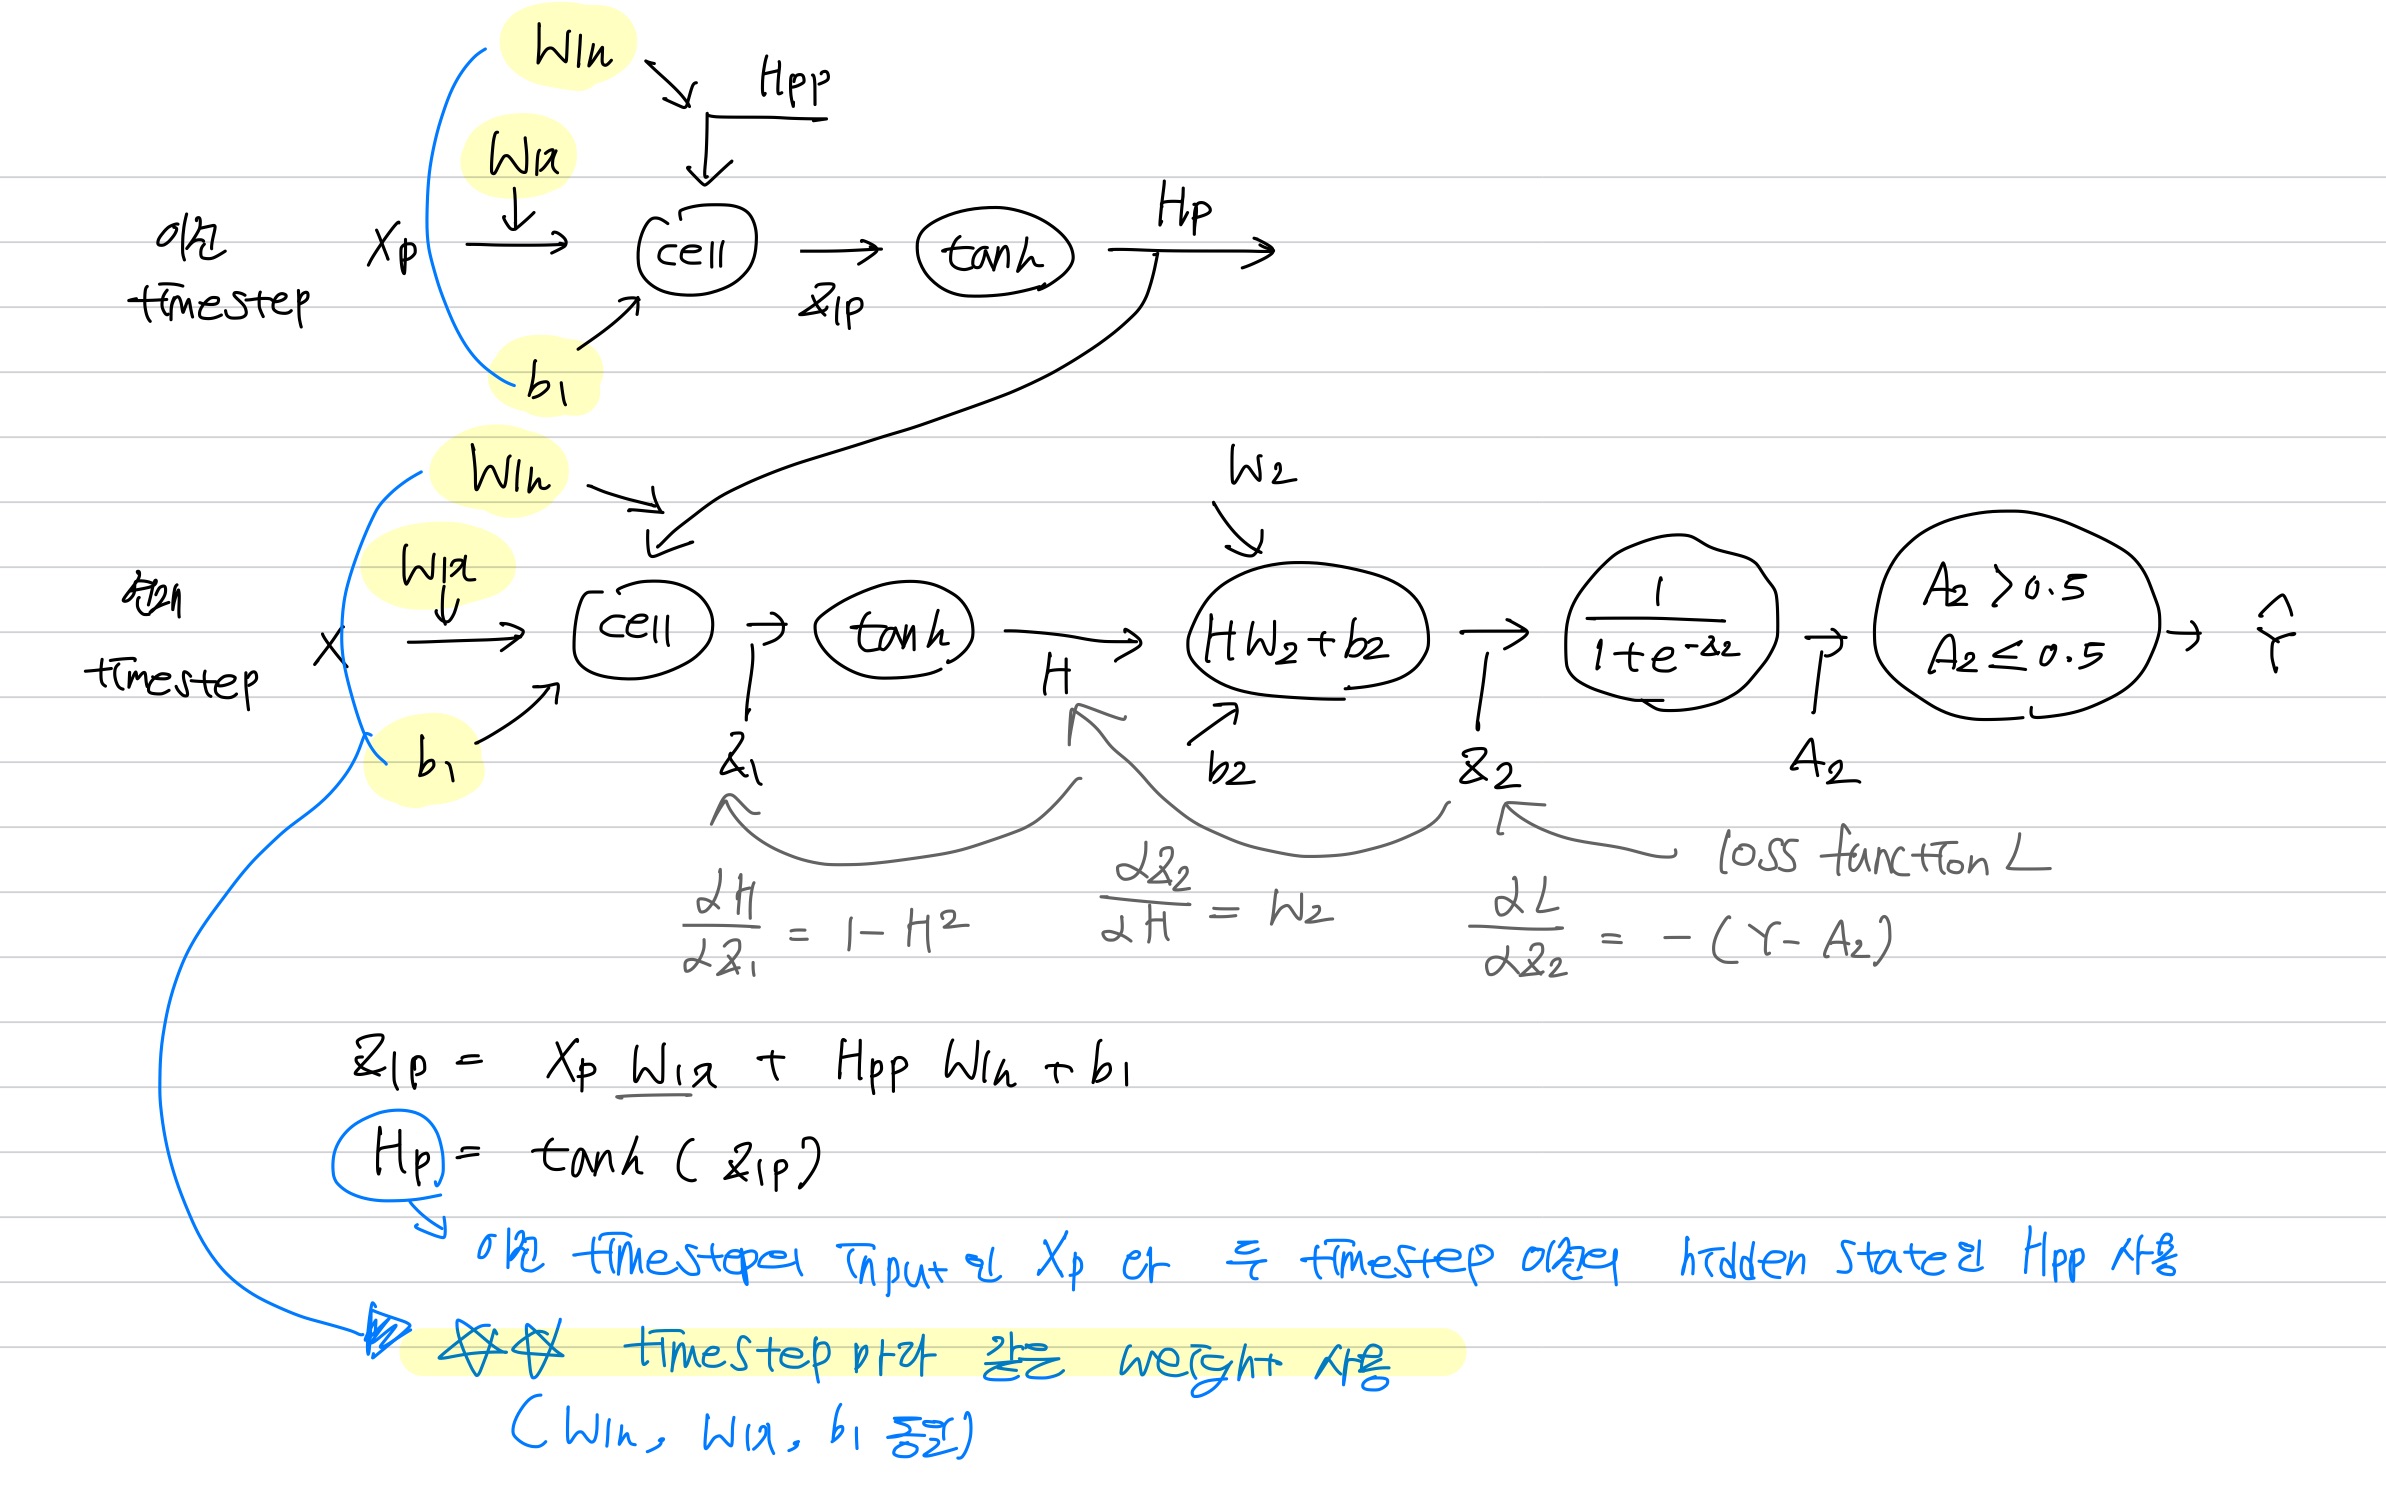 W1h
Hpp
W1x
Hp
이전
timestep
Xp
cell
tanh
Z1p
b1
W1h
W2
W1x
현재
timestep
X
cell
tanh
H
HW2+b2
1
1+e^-z2
A2 > 0.5
A2 ≤ 0.5
Ŷ
b1
Z1
b2
Z2
A2
loss function L
∂H/∂Z1 = 1 - H²
∂Z2/∂H = W2
∂L/∂Z2 = -(Y - A2)
Z1p = Xp W1x + Hpp W1h + b1
Hp = tanh (Z1p)
이전 timestep의 input인 Xp 와 timestep 이전의 hidden state인 Hpp 사용
☆☆ timestep마다 같은 weight 사용
(W1h, W1x, b1 동일)